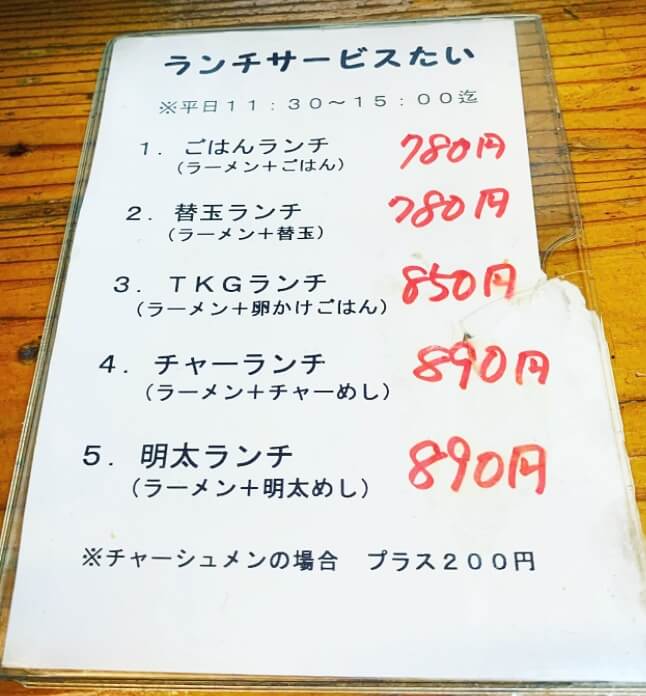 ランチサービスたい
※平日11：30～15：00迄
1．ごはんランチ 780円
（ラーメン＋ごはん）
2．替玉ランチ 780円
（ラーメン＋替玉）
3．TKGランチ 850円
（ラーメン＋卵かけごはん）
4．チャーランチ 890円
（ラーメン＋チャーめし）
5．明太ランチ 890円
（ラーメン＋明太めし）
※チャーシュメンの場合　プラス200円